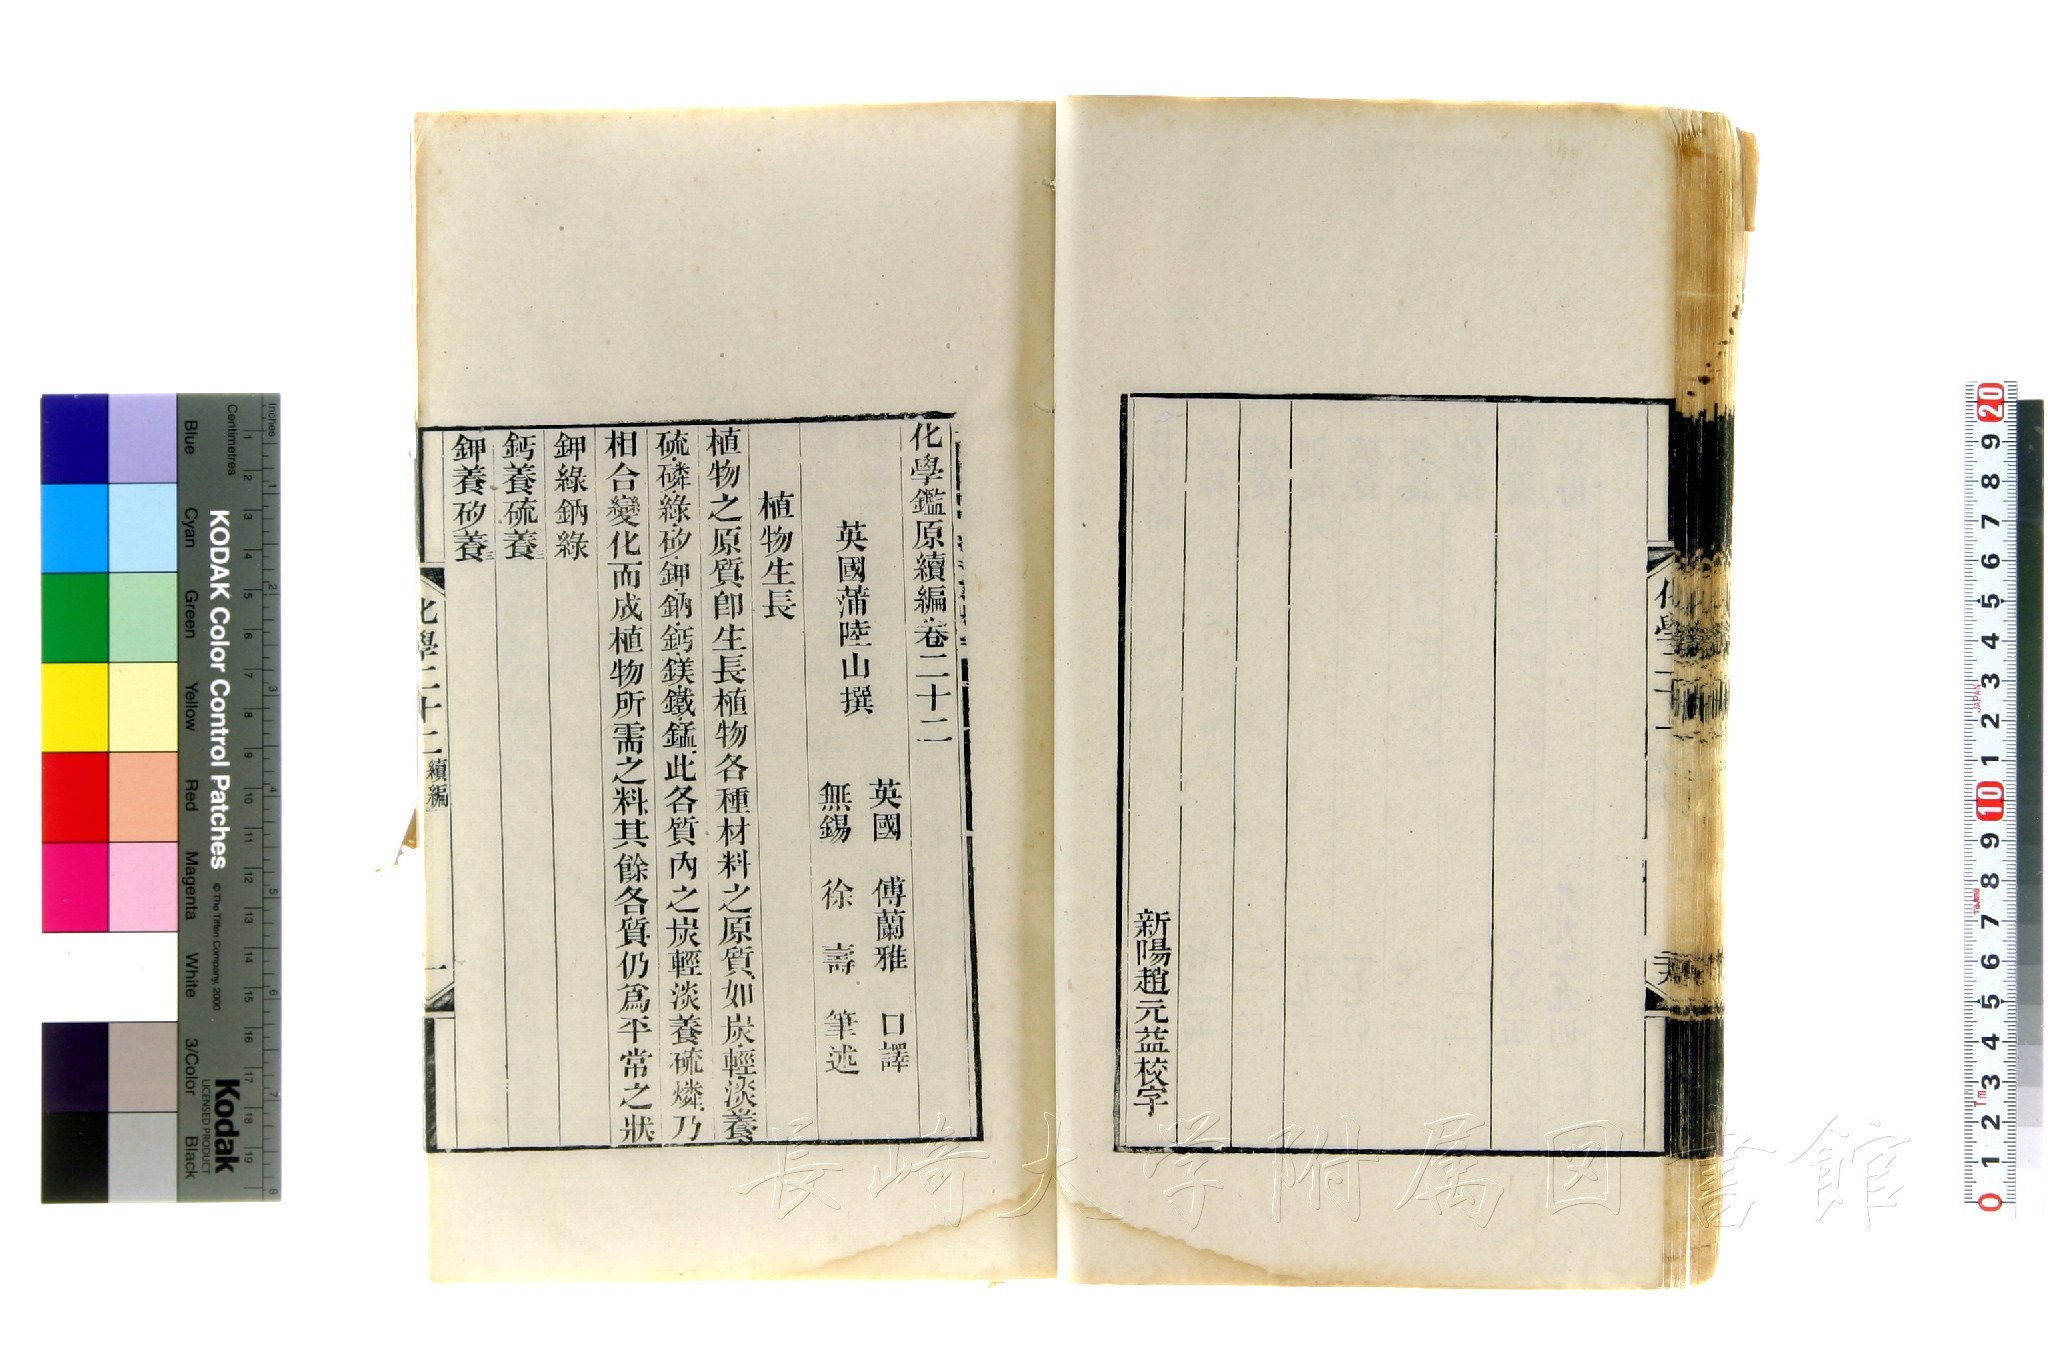 新陽趙元益校字
化學鑑原續編卷二十二
英國蒲陸山撰
英國 傅蘭雅 口譯
無錫 徐 壽 筆述
植物生長
植物之原質卽生長植物各種材料之原質如炭輕淡養
硫磷綠矽鉀鈉鈣鎂鐵錳此各質內之炭輕淡養硫燐乃
相合變化而成植物所需之料其餘各質仍爲平常之狀
鉀綠鈉綠
鈣養硫養三
鉀養矽養三
化學二十二 續編
一
長崎大学附属図書館
KODAK Color Control Patches
© The Tiffen Company, 2000
Kodak
LICENSED PRODUCT
Inches
Centimetres
Blue
Cyan
Green
Yellow
Red
Magenta
White
3/Color
Black
JAPAN